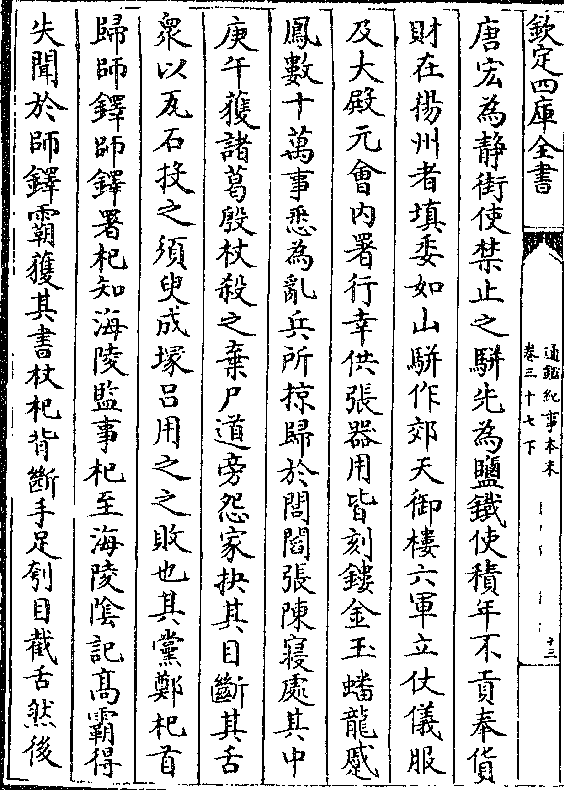 欽定四庫全書
通鑑紀事本末
卷三十七下
十三
唐宏為静街使禁止之駢先為鹽鐵使積年不貢奉貨
財在揚州者填委如山駢作郊天御樓六軍立仗儀服
及大殿元會内署行幸供張器用皆刻鏤金玉蟠龍蹙
鳳數十萬事悉為亂兵所掠歸於閭閻張陳寝處其中
庚午獲諸葛殷杖殺之棄尸道旁怨家抉其目斷其舌
衆以瓦石投之須臾成塚吕用之之敗也其黨鄭杞首
歸師鐸師鐸署杞知海陵監事杞至海陵隂記髙霸得
失聞於師鐸霸獲其書杖杞背斷手足刳目截舌然後